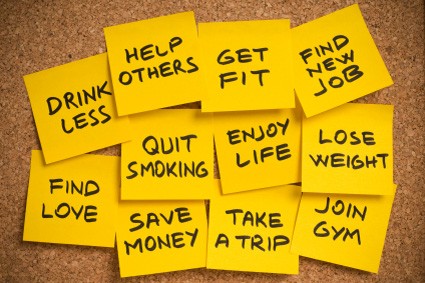 DRINK
LESS
HELP
OTHERS
GET
FIT
FIND
NEW
JOB
QUIT
SMOKING
ENJOY
LIFE
LOSE
WEIGHT
FIND
LOVE
SAVE
MONEY
TAKE
A TRIP
JOIN
GYM